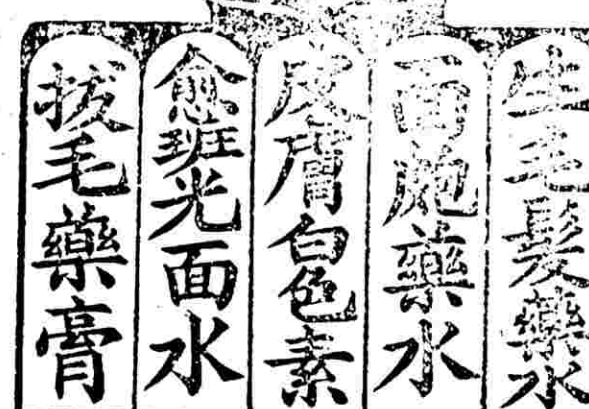 生毛髮藥水
面皰藥水
皮膚白色素
愈斑光面水
拔毛藥膏